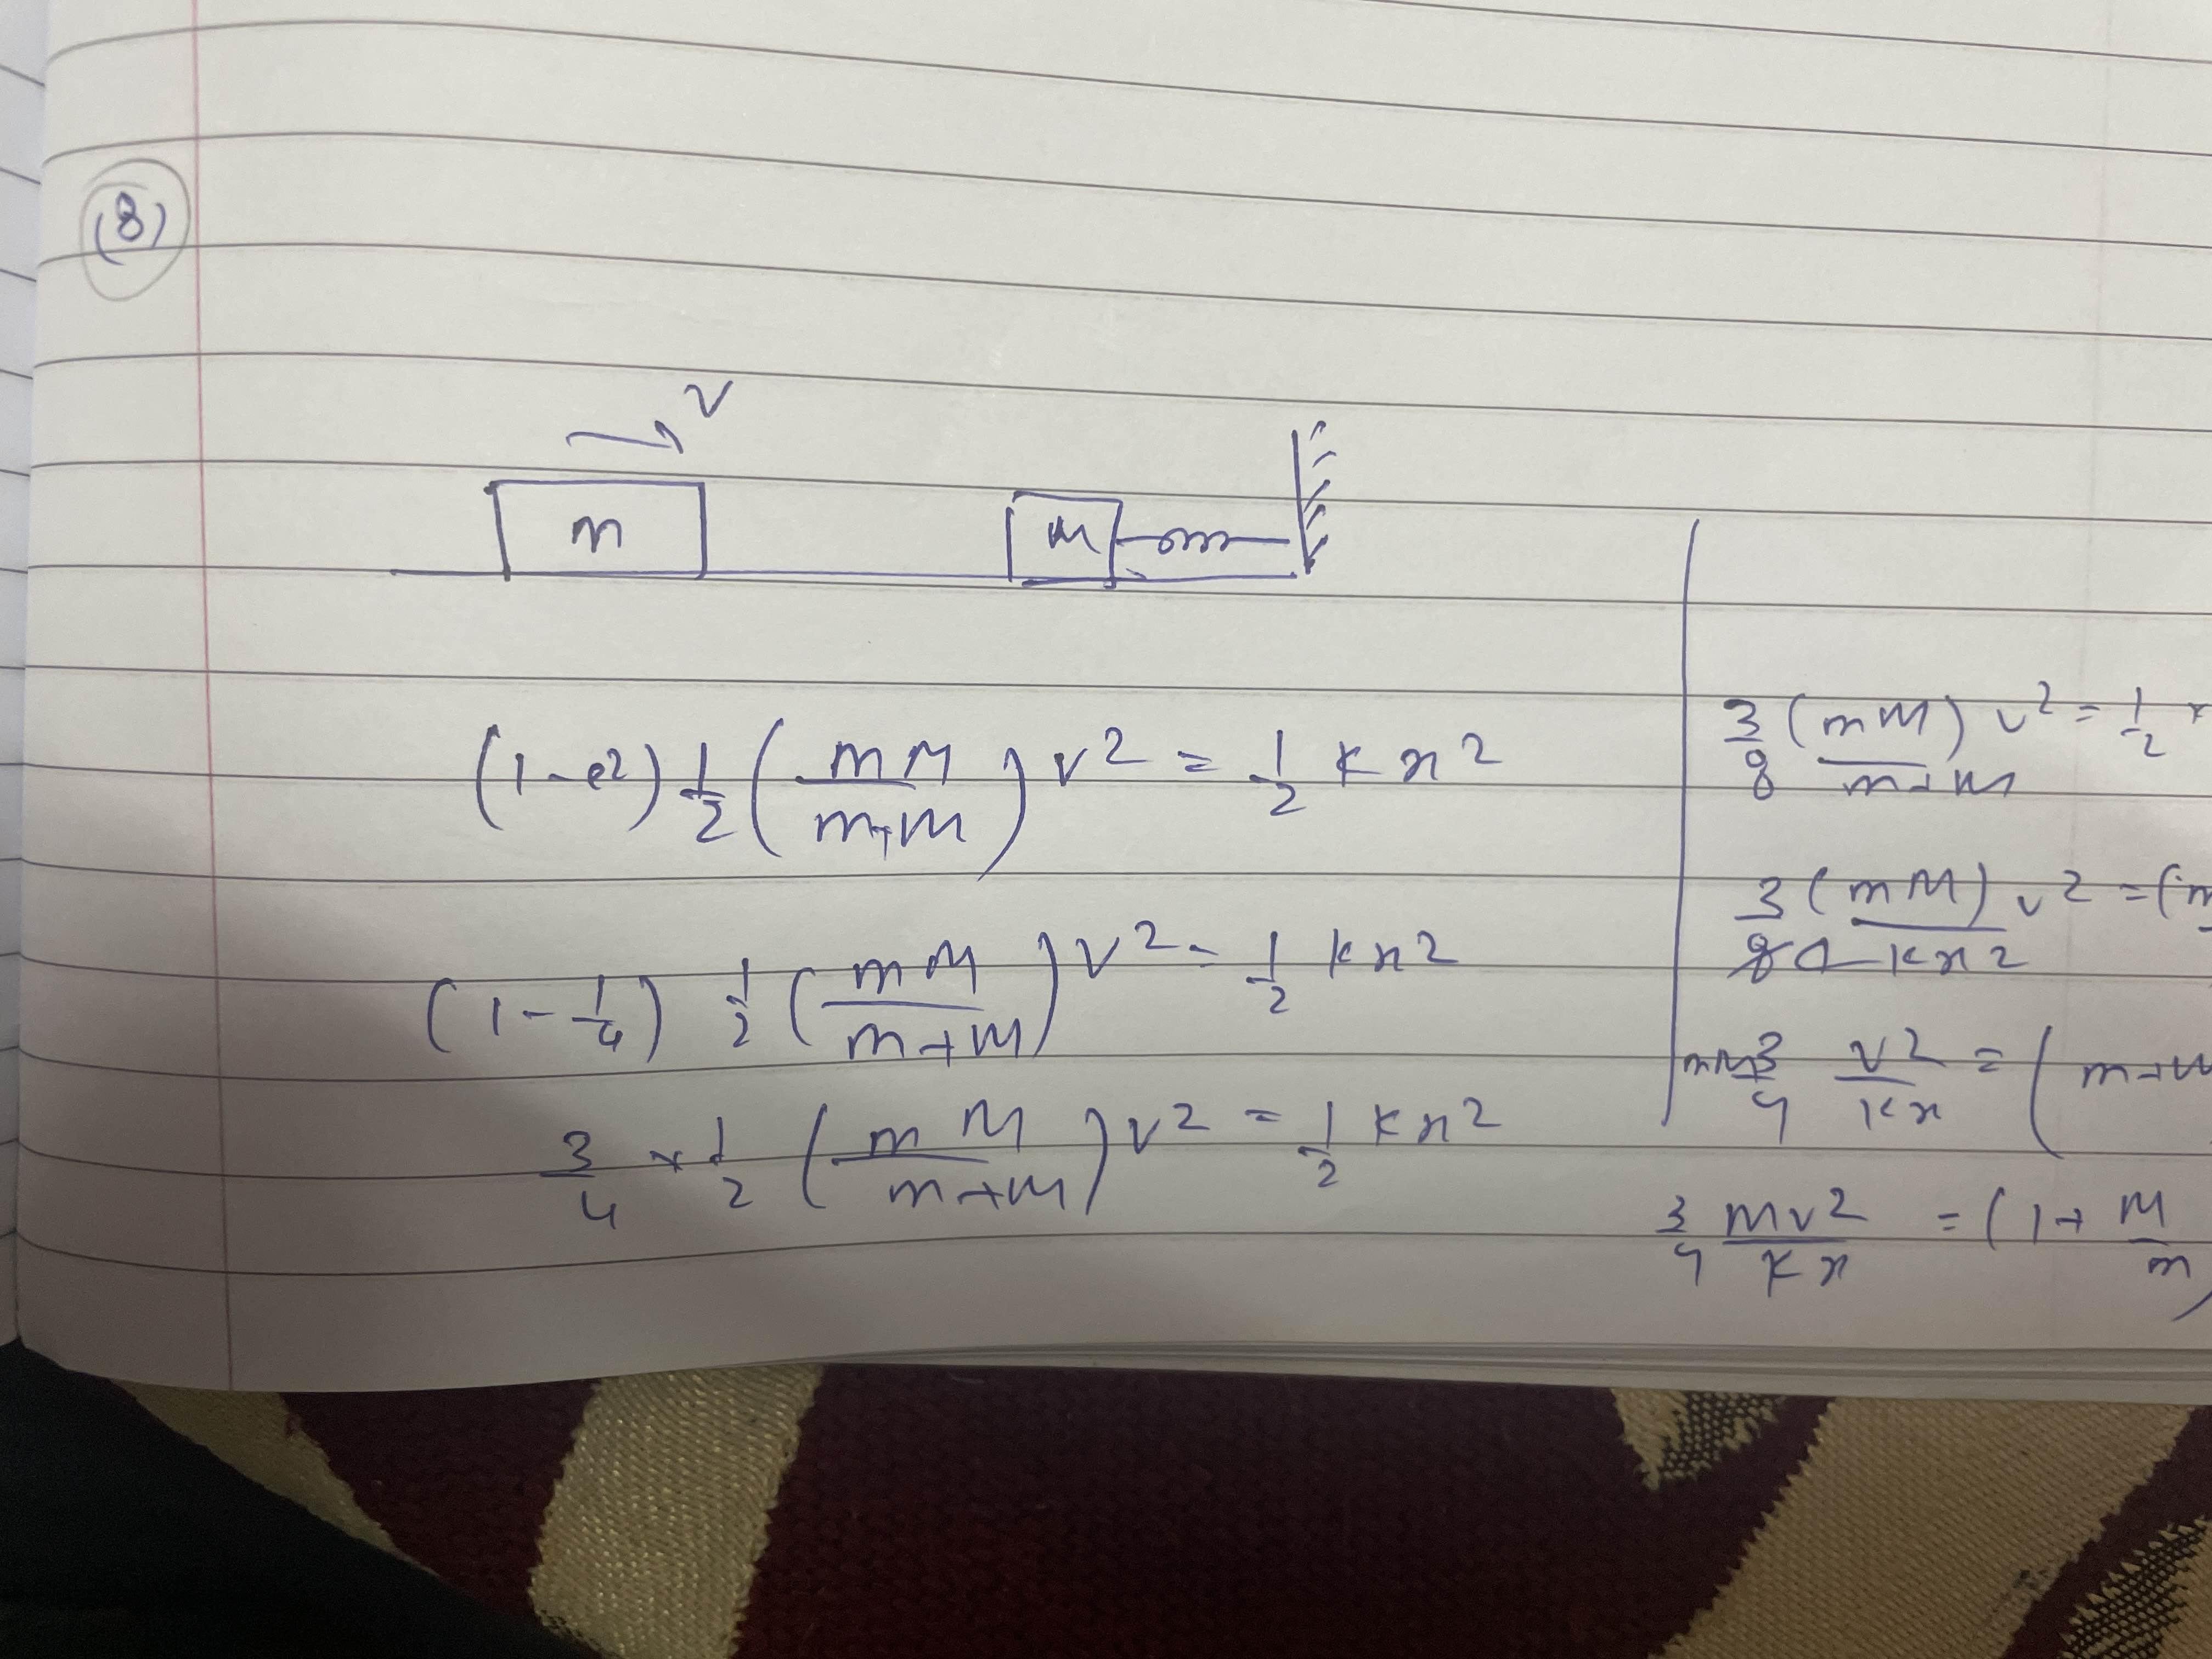 (8)
v
m
M
(1-e2) 1/2 (mM/m+M) v2 = 1/2 k x2
(1-1/4) 1/2 (mM/m+M) v2 = 1/2 k x2
3/4 × 1/2 (mM/m+M) v2 = 1/2 k x2
3/8 (mM)/m+M v2 = 1/2
3/8 (mM)/kx2 v2 = (m
mM 3/4 v2/kx = (m+M
3/4 Mv2/kx = (1+ M/m)